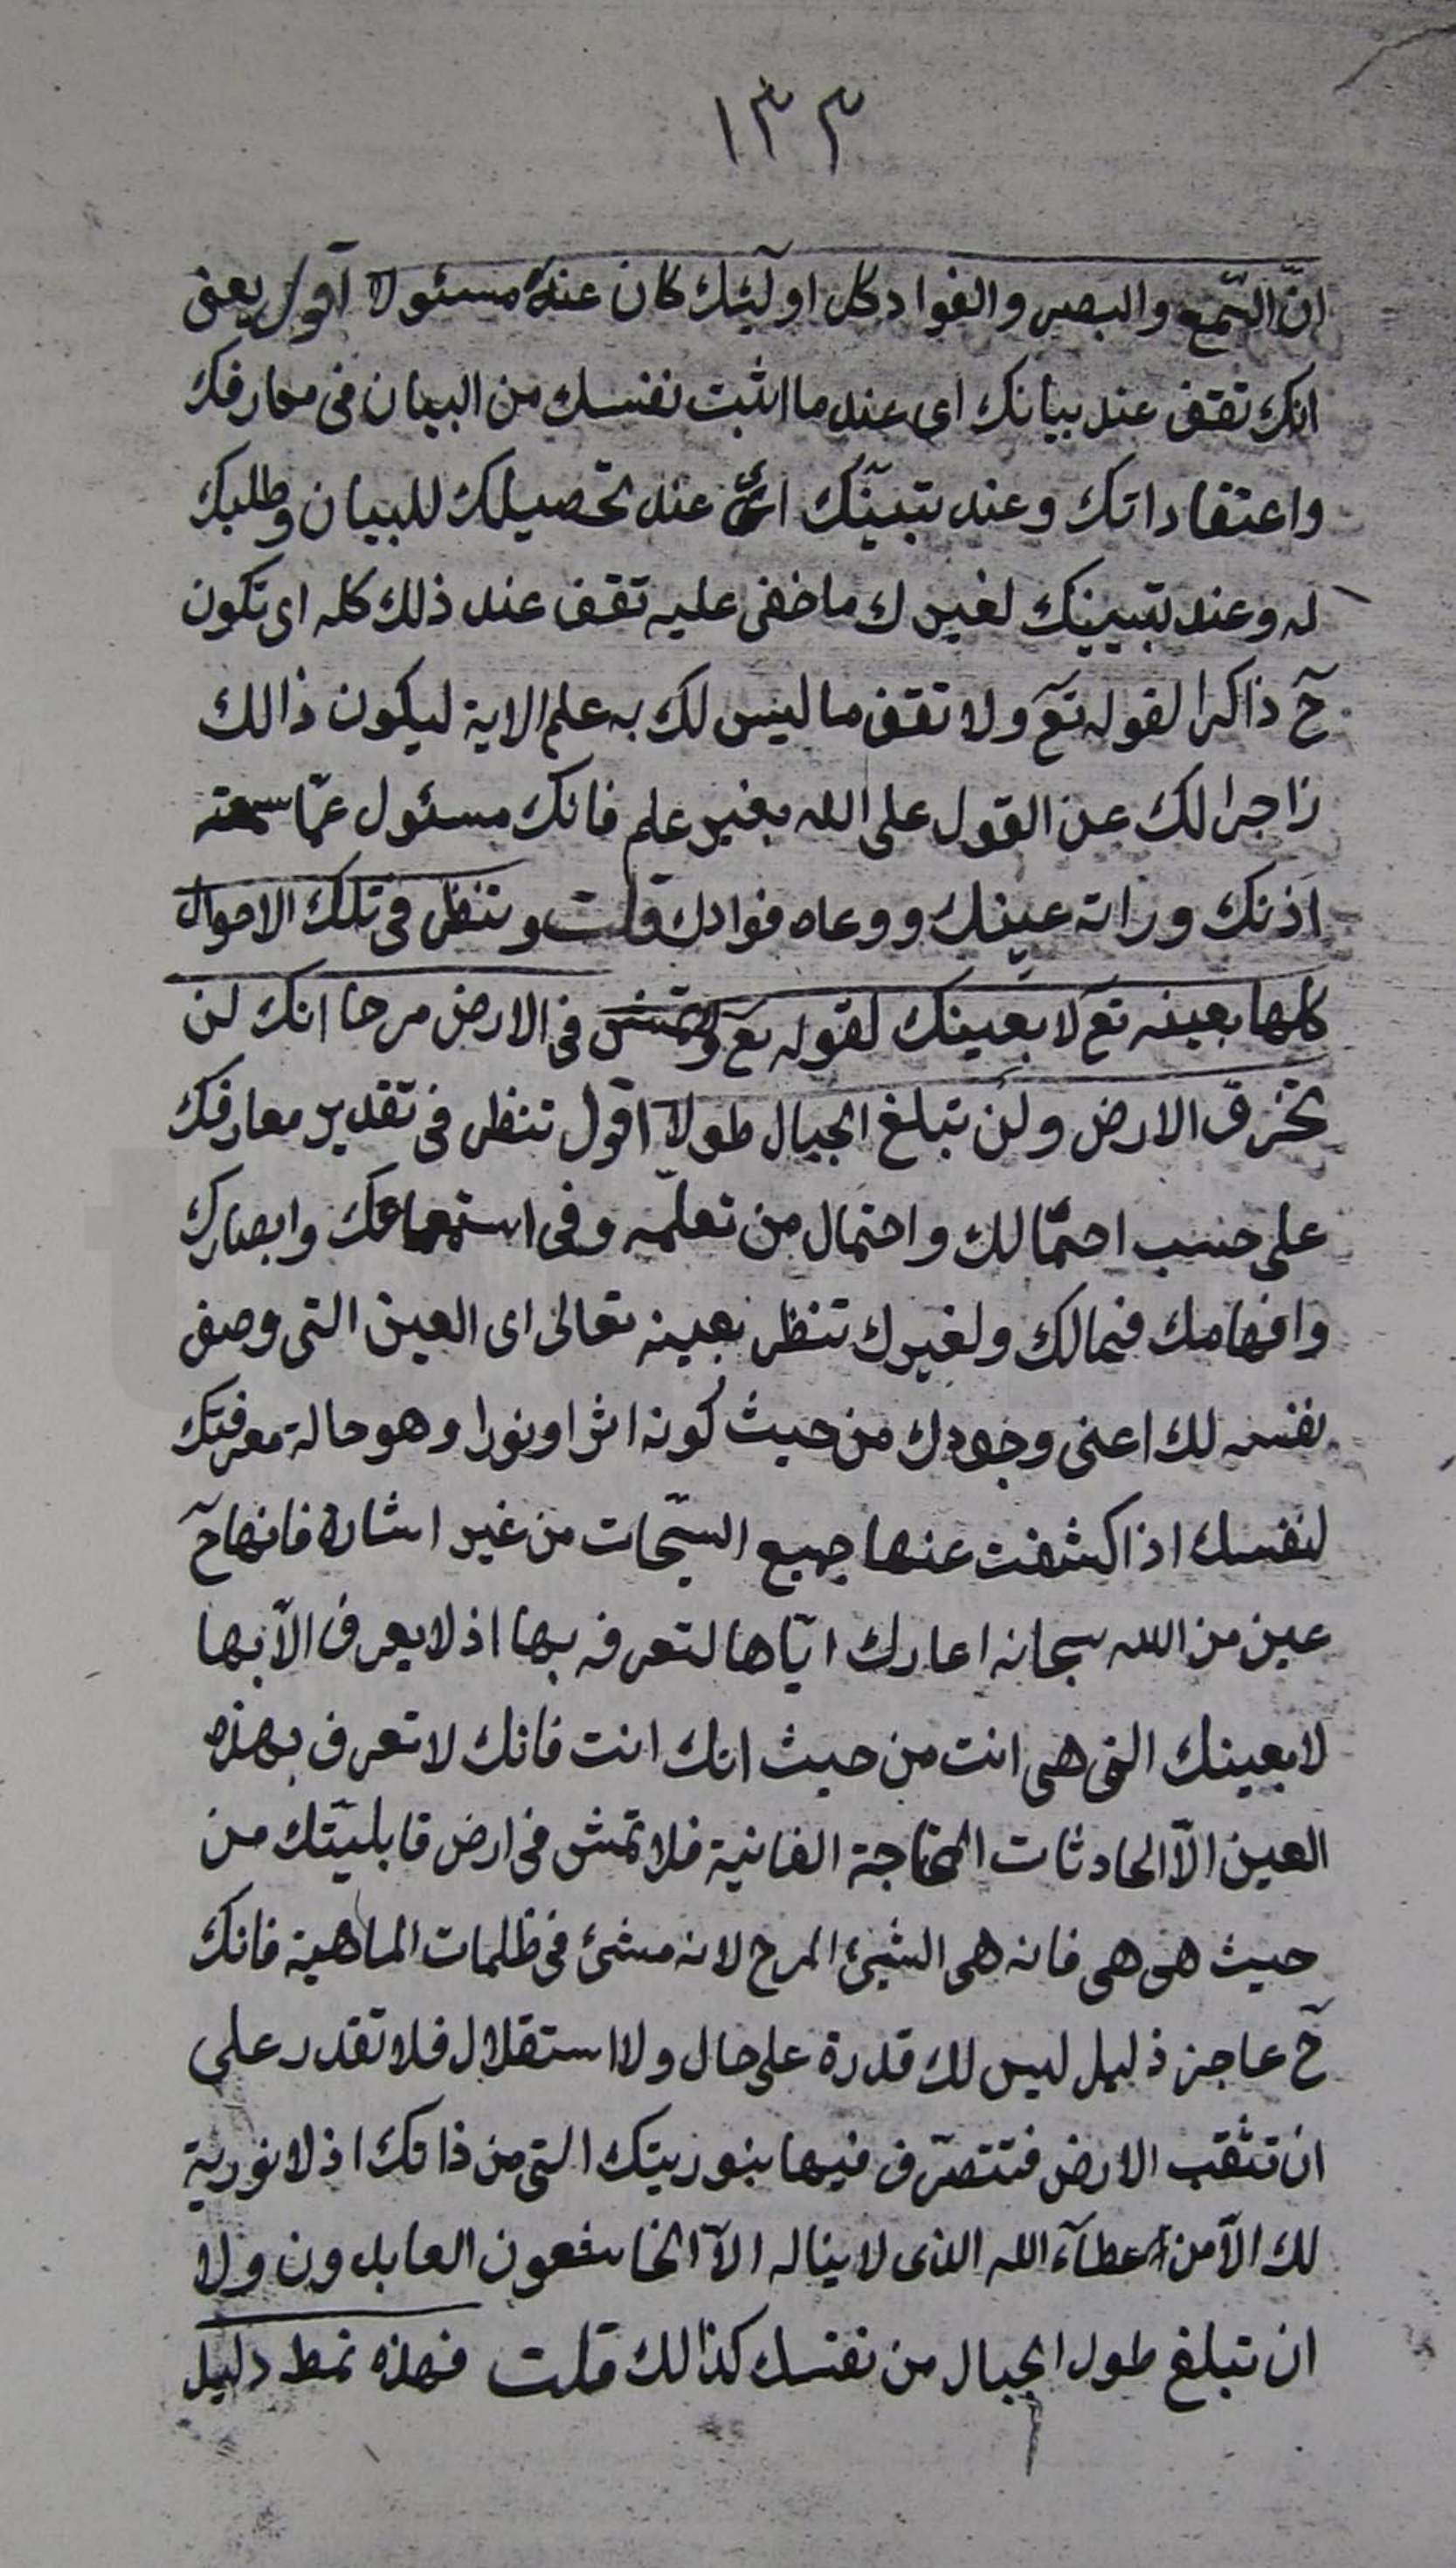 ١٣٣
انّ السّمع والبصر والفواد كل اولٓئك كان عنه مسئولا اقول يعنى
انك تقف عند بيانك اى عند ما اثبت نفسك من البيان فى معارفك
واعتقاداتك وعند تبيّنك اى عند تحصيلك للبيان وطلبك
له وعند تبيينك لغيرك ما خفى عليه تقف عند ذلك كله اى تكون
حٓ ذاكرا لقوله تعٓ ولا تقف ما ليس لك به علم الاية ليكون ذالك
زاجرا لك عن القول على الله بغير علم فانك مسئول عمّا سمعته
اذنك وراته عينك ووعاه فوادك قلت وتنظر فى تلك الاحوال
كلها بعينه تعٓ لا بعينك لقوله تعٓ ولا تمش فى الارض مرحا انك لن
تخرق الارض ولن تبلغ الجبال طولا اقول تنظر فى تقدير معارفك
على حسب احتمالك واحتمال من تعلّمه وفى استماعك وابصارك
وافهامك فيما لك ولغيرك تنظر بعينه تعالى اى العين التى وصف
نفسه لك اعنى وجودك من حيث كونه اثرا ونورا وهو حالة معرفتك
لنفسك اذا كشفت عنها جميع السّبحات من غير اشارة فانها حٓ
عين من الله سبحانه اعارك ايّاها لتعرفه بها اذ لا يعرف الّا بها
لا بعينك التى هى انت من حيث انك انت فانك لا تعرف بهذه
العين الّا الحادثات المحتاجة الفانية فلا تمش فى ارض قابليّتك من
حيث هى هى فانه هى الشيئ المرح لانه مشئ فى ظلمات الماهية فانك
حٓ عاجز ذليل ليس لك قدرة على حال ولا استقلال فلا تقدر على
ان تثقب الارض فتتصرّف فيها بنوريتك التى من ذاتك اذ لا نورية
لك الّا من عطآء الله الذى لا يناله الّا الخاشعون العابدون ولا
ان تبلغ طول الجبال من نفسك كذالك قلت فهذه نمط دليل